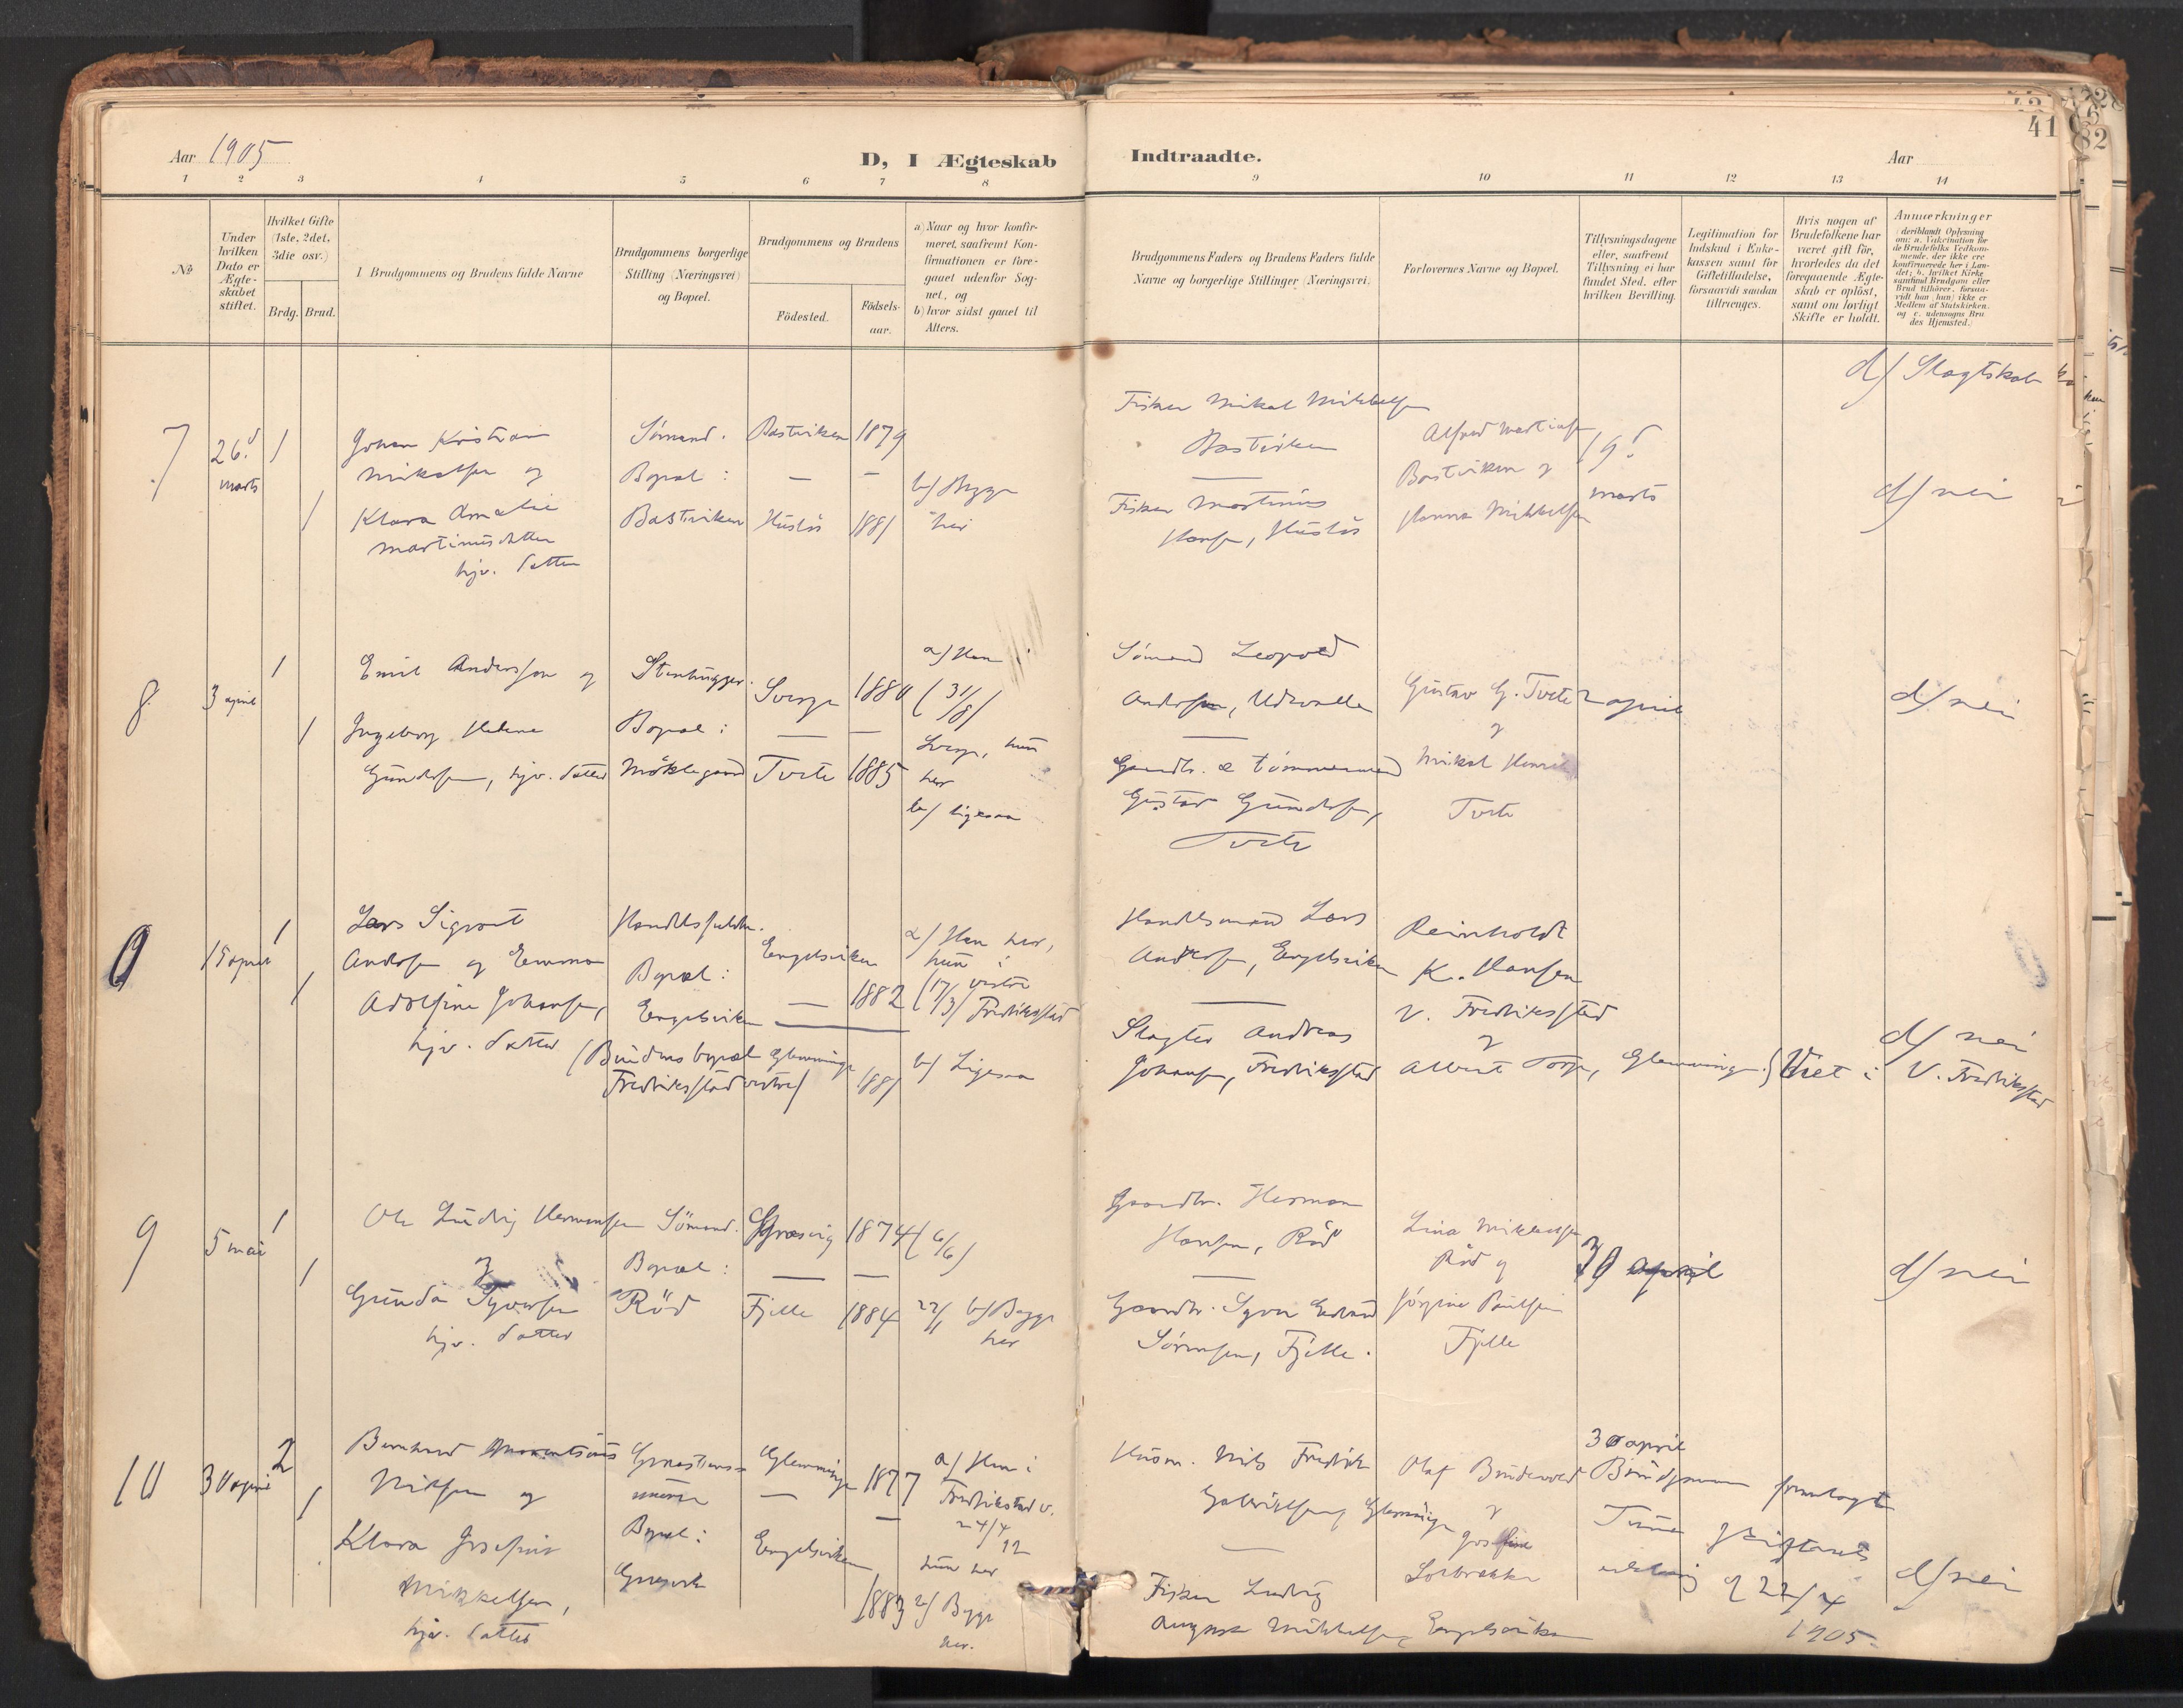 Aar 1905
D, I Ægteskab
Indtraadte.
Aar
41
1 2 3 4 5 6 7 8 9 10 11 12 13 14
№
Under hvilken Dato er Ægteskabet stiftet.
Hvilket Gifte (1ste, 2det, 3die osv.)
Brdg. Brud.
I Brudgommens og Brudens fulde Navne
Brudgommens borgerlige Stilling (Næringsvei) og Bopæl.
Brudgommens og Brudens
Födested.
Födselsaar.
a) Naar og hvor konfirmeret, saafremt Konfirmationen er foregaaet udenfor Sognet, og
b) hvor sidst gaaet til Alters.
Brudgommens Faders og Brudens Faders fulde Navne og borgerlige Stillinger (Næringsvei)
Forlovernes Navne og Bopæl.
Tillysningsdagene eller, saafremt Tillysning ei har fundet Sted, efter hvilken Bevilling.
Legitimation for Indskud i Enkekassen samt for Giftetilladelse, forsaavidt saadan tiltrænges.
Hvis nogen af Brudefolkene har været gift för, hvorledes da det foregaaende Ægteskab er oplöst, samt om lovligt Skifte er holdt.
Anmærkninger (deriblandt Oplysning om: a. Vakcination for de Brudefolks Vedkommende, der ikke ere konfirmerede her i Landet; b. hvilket Kirkesamfund Brudgom eller Brud tilhörer, forsaavidt han (hun) ikke er Medlem af Statskirken. og c. udensogns Brudes Hjemsted.)
d/ Slagtskab
7
26d
marts
1
1
Johan Kristian
Mikalsen og
Klara Amalie
Martinusdatter
hjv. datter
Sömand.
Bopæl:
Bastviken
Bastviken
—
Huslös
1879
—
1881
b/ Begge
her
Fisker Mikal Mikkelsen
Bastviken
Fisker Martinus
Hansen, Huslös
Alfred Martinsen
Bastviken og
Hanna Mikkelsen
19d
marts
d/ nei
8
3 april
1
1
Emil Andersson og
Ingeborg Helene
Gundersen, hjv. datter
Stenhugger.
Bopæl:
Möklegaard
Sverge
—
Tvete
1880
—
1885
a/ Han i
(31/8)
Sverge, hun
her
b/ ligesaa
Sömand Leopold
Andersen, Udevalla
Gaardbr. & tömmermand
Gustav Gundersen,
Tvete
Gustav G. Tvete
og
Mikal Henrik
Tvete
2 april
d/ nei
0
15 april
1
1
Lars Sigvart
Andersen og Emma
Adolfine Johansen,
hjv. datter
Handelsfuldm.
Bopæl:
Engelsviken
(Brudens bopæl
Fredriksstad vestre)
Engelsviken
—
Glemminge
1882
1881
a/ Han her,
hun i
vestre
(17/3) Fredriksstad
b/ Ligesaa
Handelsmand Lars
Andersen, Engelsviken
Slagter Andreas
Johansen, Fredriksstad
Reinholdt
K. Hansen
V. Fredriksstad
og
Albert Torp, Glemminge
Viet i V. Fredriksstad
d/ nei
9
5 mai
1
1
Ole Ludvig Hermansen
og
Gunda Syversen
hjv. datter
Sömand.
Bopæl:
Röd
Græsvig
—
Fjelle
1874
—
1884
(6/6)
22/11 b/ Begge
her
Gaardbr. Herman
Hansen, Röd
Gaardbr. Syver Edvard
Sörensen, Fjelle.
Lina Mikkelsen
Röd og
Jörgine Paulsen
Fjelle
30 april
d/ nei
10
30 april
2
1
Bernhard
Nilsen og
Klara Josefine
Mikkelsen,
hjv. datter
Bopæl:
Græsvik
Glemminge
—
Engelsviken
1877
—
1883
a/ Han i
Fredrikstad v.
hun her
b/ Begge
her.
Husm. Nils Fredrik
Gabrielsen, Glemminge
Fisker Ludvig
August Mikkelsen, Engelsviken
Olaf Brudevold
og
30 april
Brudgommen fremlagt
Tune
22/4
1905
d/ nei